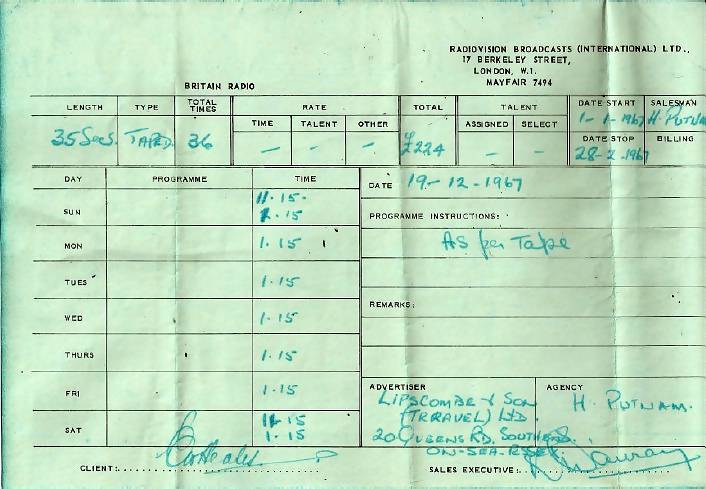 RADIOVISION BROADCASTS (INTERNATIONAL) LTD.,
17 BERKELEY STREET,
LONDON, W.1.
MAYFAIR 7494
BRITAIN RADIO
LENGTH TYPE TOTAL TIMES RATE TOTAL TALENT DATE START SALESMAN
TIME TALENT OTHER ASSIGNED SELECT 1-1-1967 H. PUTNAM
35 Secs. TAPED. 36 - - - £224 - - DATE STOP BILLING
28-2-1967
DAY PROGRAMME TIME DATE 19-12-1967
SUN 11.15.
1.15
PROGRAMME INSTRUCTIONS:
MON 1.15 As per Tape
TUES 1.15
REMARKS:
WED 1.15
THURS 1.15
FRI 1.15
SAT 11.15
1.15
ADVERTISER AGENCY
LIPSCOMBE & SON H. PUTNAM.
(TRRAVEL) LTD.
20 QUEENS RD, SOUTHEND
ON-SEA. ESSEX
CLIENT: SALES EXECUTIVE: